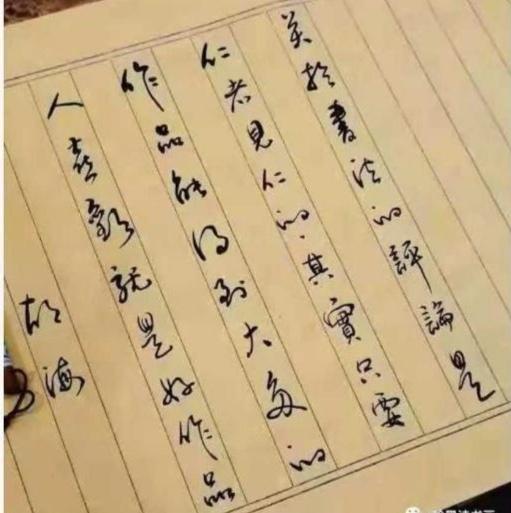 关于書法的評論是
仁者見仁的.其實只要
作品能得到大多的
人喜歡就是好作品
胡海